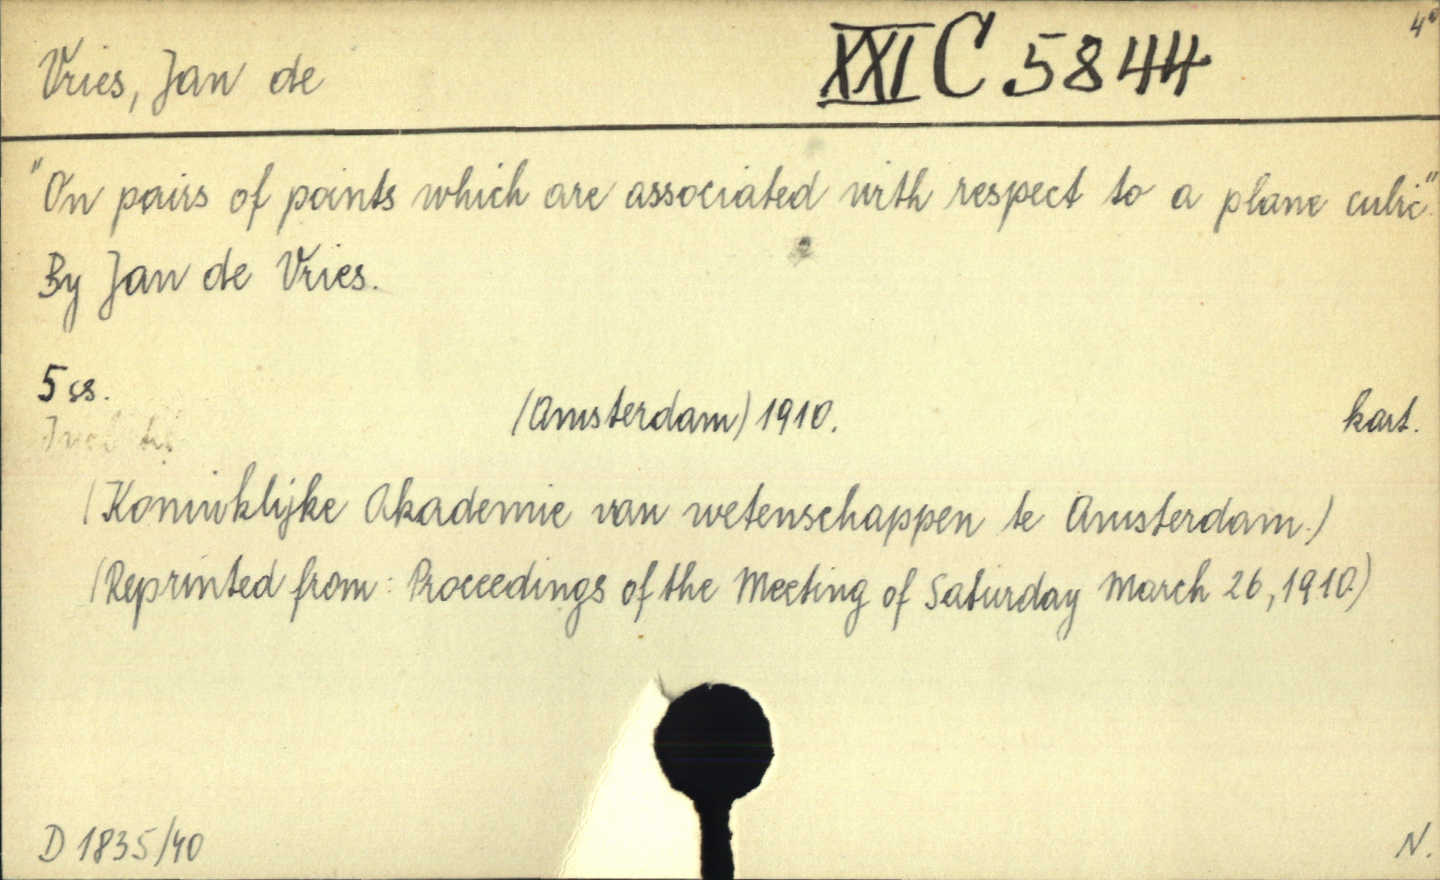 Vries, Jan de
XXI C 5844
4°
"On pairs of points which are associated with respect to a plane cubic".
By Jan de Vries.
5 ss.
(Amsterdam) 1910.
kart.
(Koninklijke Akademie van wetenschappen te Amsterdam.)
(Reprinted from: Proceedings of the Meeting of Saturday March 26, 1910.)
D 1835/40
N.